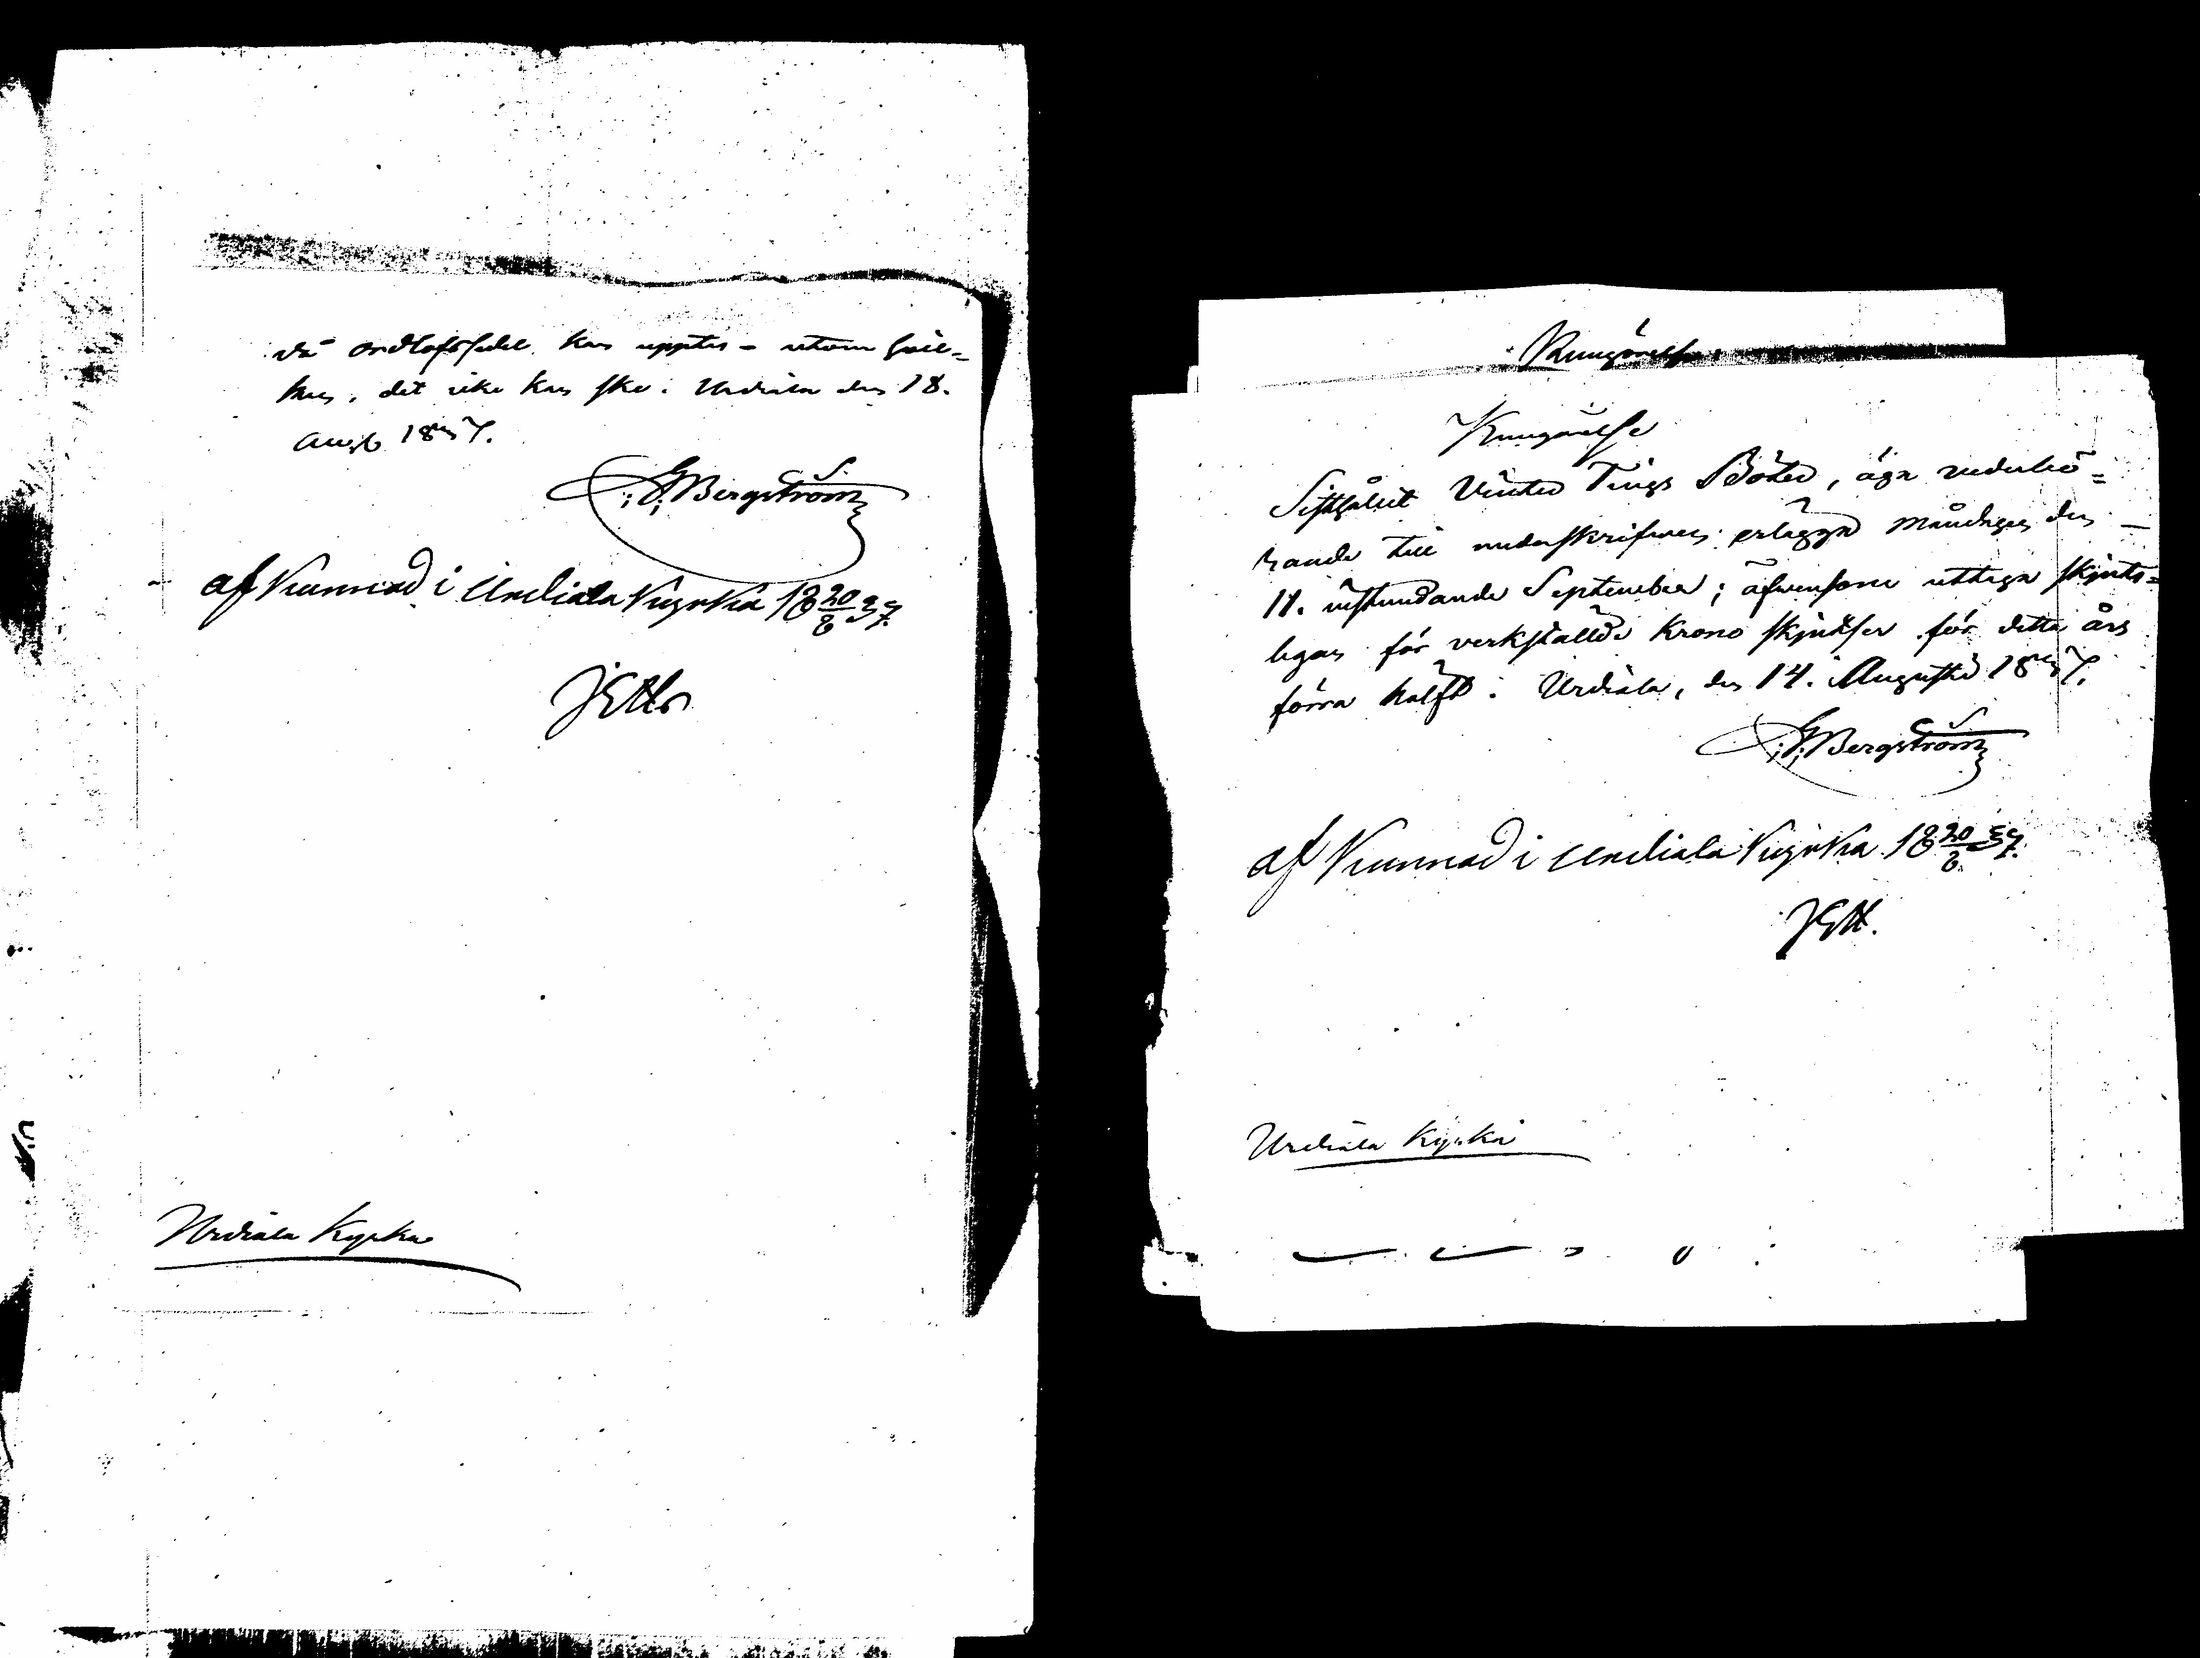 då ordlofssedel kan upptes - utom hvil-
ket, det icke kan ske. Urdiala den 18.
Aug. 1837.
G: G: Bergström
af Kunnad i Urdiala Kyrka 18 20/8 37.
Urdiala Kyrka
Kungörelse
Kungörelse
Sisthållit Vinter Tings Böter, äga vederbö-
rande till undertecknad erlägga Måndagen den
11. instundande September; äfvensom uttaga skjuts-
legan för verkställde Krono skjutser för detta års
förra hälft. Urdiala, den 14. Augusti 1837.
G: G: Bergström
af Kunnad i Urdiala Kyrka 18 20/8 37.
JEM.
Urdiala Kyrka